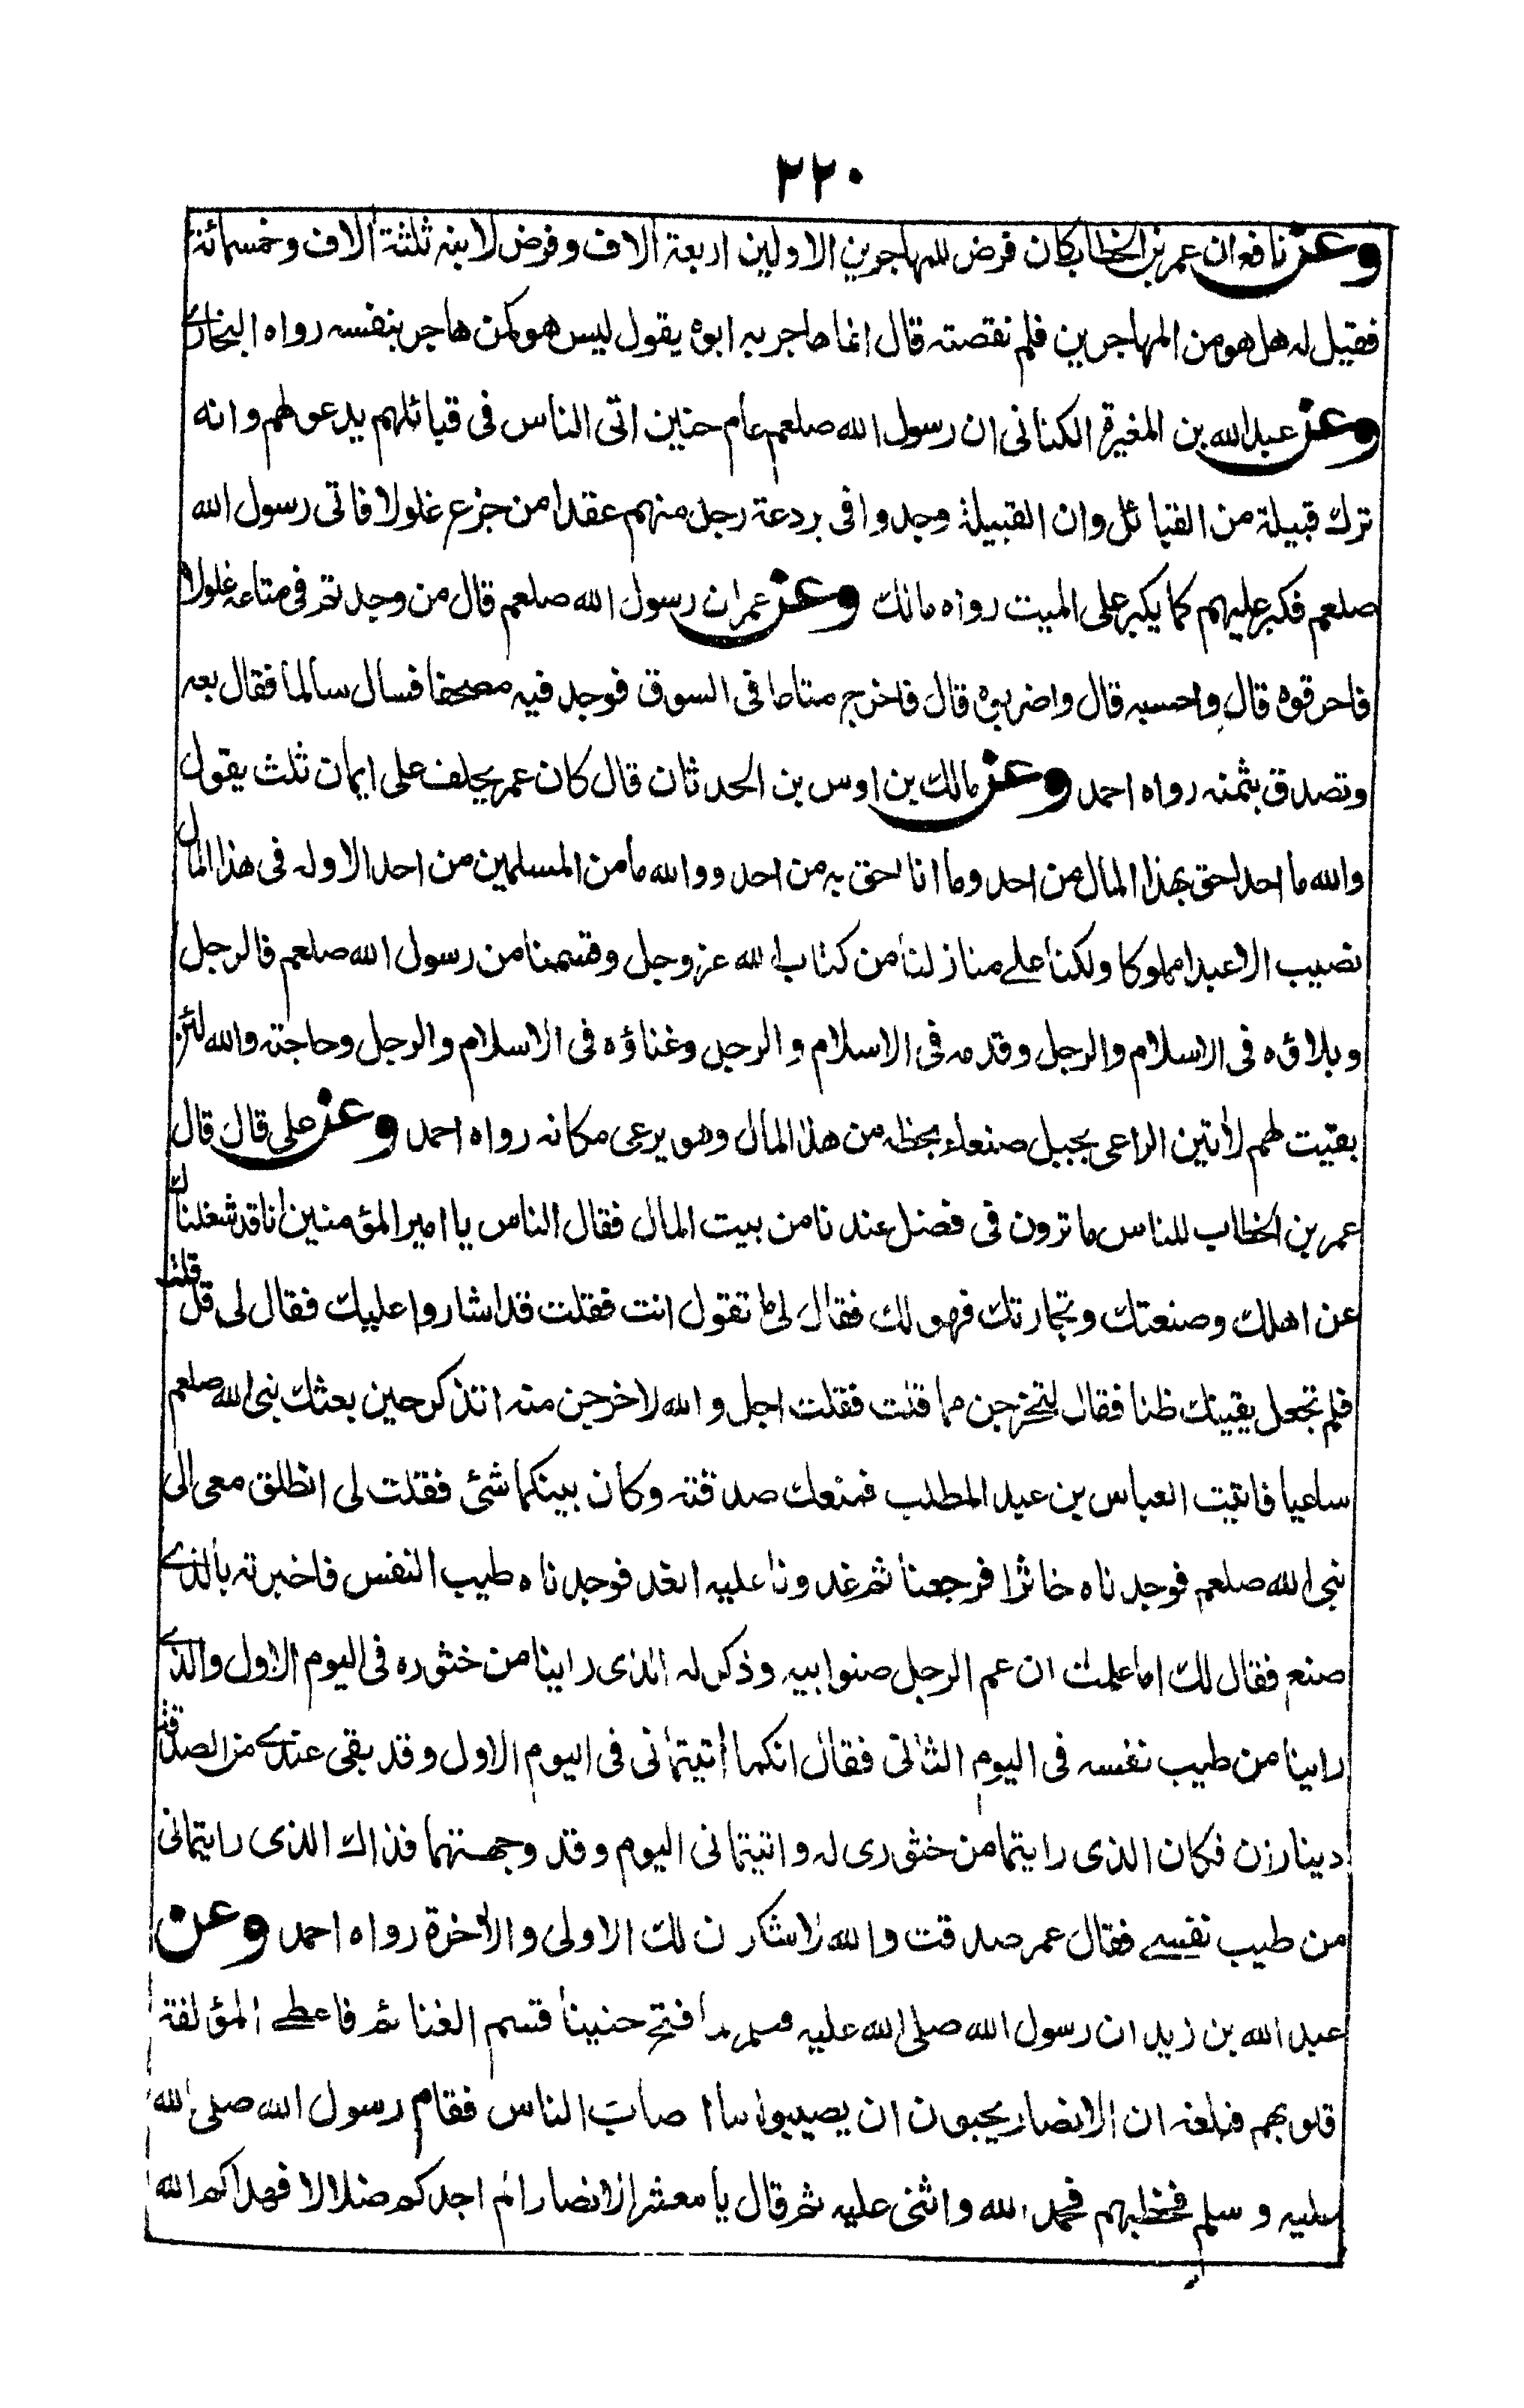 ٢٢٠
وعن نافع ان عمر بن الخطاب كان فرض للمهاجرين الاولين اربعة الاف وفرض لابنه ثلثة الاف وخمسمائة
فقيل له هل هو من المهاجرين فلم نقصته قال انما هاجر به ابوه يقول ليس هو كمن هاجر بنفسه رواه البخارى
وعن عبد الله بن المغيرة الكنانى ان رسول الله صلعم عام حنين اتى الناس فى قبائلهم يدعو لهم وانه
ترك قبيلة من القبائل وان القبيلة وجدوا فى بردعة رجل منهم عقدا من جزع غلولا فاتى رسول الله
صلعم فكبر عليهم كما يكبر على الميت رواه مالك وعن عمر ان رسول الله صلعم قال من وجدتم فى متاعه غلولا
فاحرقوه قال واحسبه قال واضربوه قال فاخرج متاعا فى السوق فوجد فيه مصحفا فسال سالما فقال بعه
وتصدق بثمنه رواه احمد وعن مالك بن اوس بن الحدثان قال كان عمر يحلف على ايمان ثلث يقول
والله ما احد احق بهذا المال من احد وما انا احق به من احد ووالله ما من المسلمين من احد الا وله فى هذا المال
نصيب الا عبدا مملوكا ولكنا على منازلنا من كتاب الله عز وجل وقسمنا من رسول الله صلعم فالرجل
وبلاؤه فى الاسلام والرجل وقدمه فى الاسلام والرجل وغناؤه فى الاسلام والرجل وحاجته والله لئن
بقيت لهم لأتين الراعى بجبل صنعاء بحظه من هذا المال وهو يرعى مكانه رواه احمد وعن على قال قال
عمر بن الخطاب للناس ما ترون فى فضل عندنا من بيت المال فقال الناس يا امير المؤمنين انا قد شغلناك
عن اهلك وصنعتك وتجارتك فهو لك فقال لى ما تقول انت فقلت قد اشاروا عليك فقال لى قل قلت
فلم تجعل يقينك ظنا فقال لتخرجن مما قلت فقلت اجل والله لاخرجن منه اتذكر حين بعثك نبى الله صلعم
ساعيا فاتيت العباس بن عبد المطلب فمنعك صدقته وكان بينكما شئ فقلت لى انطلق معى الى
نبى الله صلعم فوجدناه خاثرا فرجعنا ثم غدونا عليه الغد فوجدناه طيب النفس فاخبرته بالذى
صنع فقال لك اما علمت ان عم الرجل صنو ابيه وذكر له الذى راينا من خثوره فى اليوم الاول والذى
راينا من طيب نفسه فى اليوم الثانى فقال انكما أتيتمانى فى اليوم الاول وقد بقى عندى من الصدقة
ديناران فكان الذى رايتما من خثورى له واتيتمانى اليوم وقد وجهتهما فذاك الذى رايتمانى
من طيب نفسى فقال عمر صدقت والله لاشكرن لك الاولى والاخرة رواه احمد وعن
عبد الله بن زيد ان رسول الله صلى الله عليه وسلم لما فتح حنينا قسم الغنائم فاعطى المؤلفة
قلوبهم فبلغه ان الانصار يحبون ان يصيبوا ما اصاب الناس فقام رسول الله صلى الله
عليه وسلم فخطبهم فحمد الله واثنى عليه ثم قال يا معشر الانصار الم اجدكم ضلالا فهداكم الله